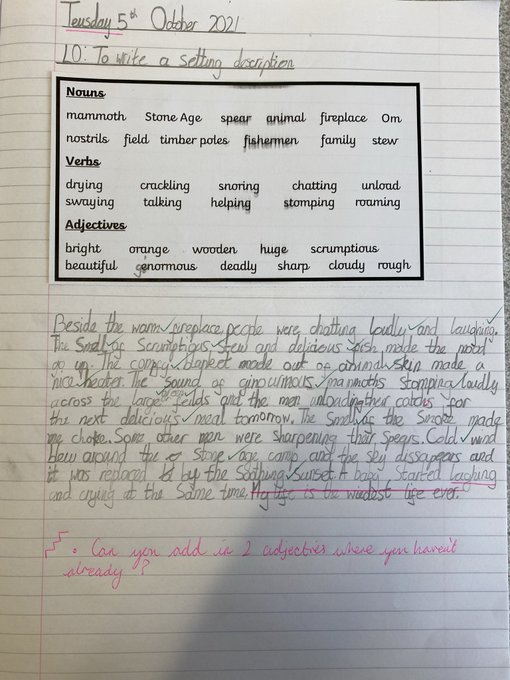 Teusday 5th October 2021
LO: To write a setting description
Nouns
mammoth Stone Age spear animal fireplace Om
nostrils field timber poles fishermen family stew
Verbs
drying crackling snoring chatting unload
swaying talking helping stomping roaming
Adjectives
bright orange wooden huge scrumptious
beautiful genormous deadly sharp cloudy rough
Beside the warm fireplace, people were chatting loudly and laughing.
The smell of scrumptious stew and delicious fish made the mood
go up. The comfy blanket made out of animal skin made a
nice heater. The sound of ginourmous mammoths stomping loudly
across the large feilds and the men unloading their catchs for
the next delicious meal tomorrow. The smell of the smoke made
me choke. Some other men were sharpening their spears. Cold wind
blew around the stone age camp and the sky dissapears and
it was replaced by the soothing sunset. A baby started laghing
and crying at the same time. My life is the weirdest life ever.
• Can you add in 2 adjectives where you haven't
already?